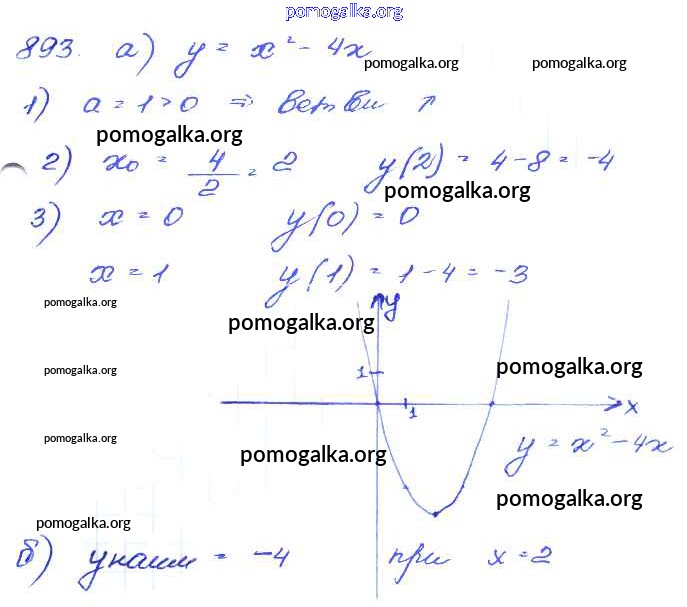 pomogalka.org
893. а) y = x² - 4x
pomogalka.org pomogalka.org
1) a = 1 > 0 ⇒ ветви ↑
pomogalka.org
2) x₀ = 4/2 = 2 y(2) = 4 - 8 = -4
pomogalka.org
3) x = 0 y(0) = 0
x = 1 y(1) = 1 - 4 = -3
pomogalka.org
y
pomogalka.org
1
pomogalka.org
pomogalka.org
1 x
pomogalka.org
y = x² - 4x
pomogalka.org
pomogalka.org
pomogalka.org
б) y наим = -4 при x = 2